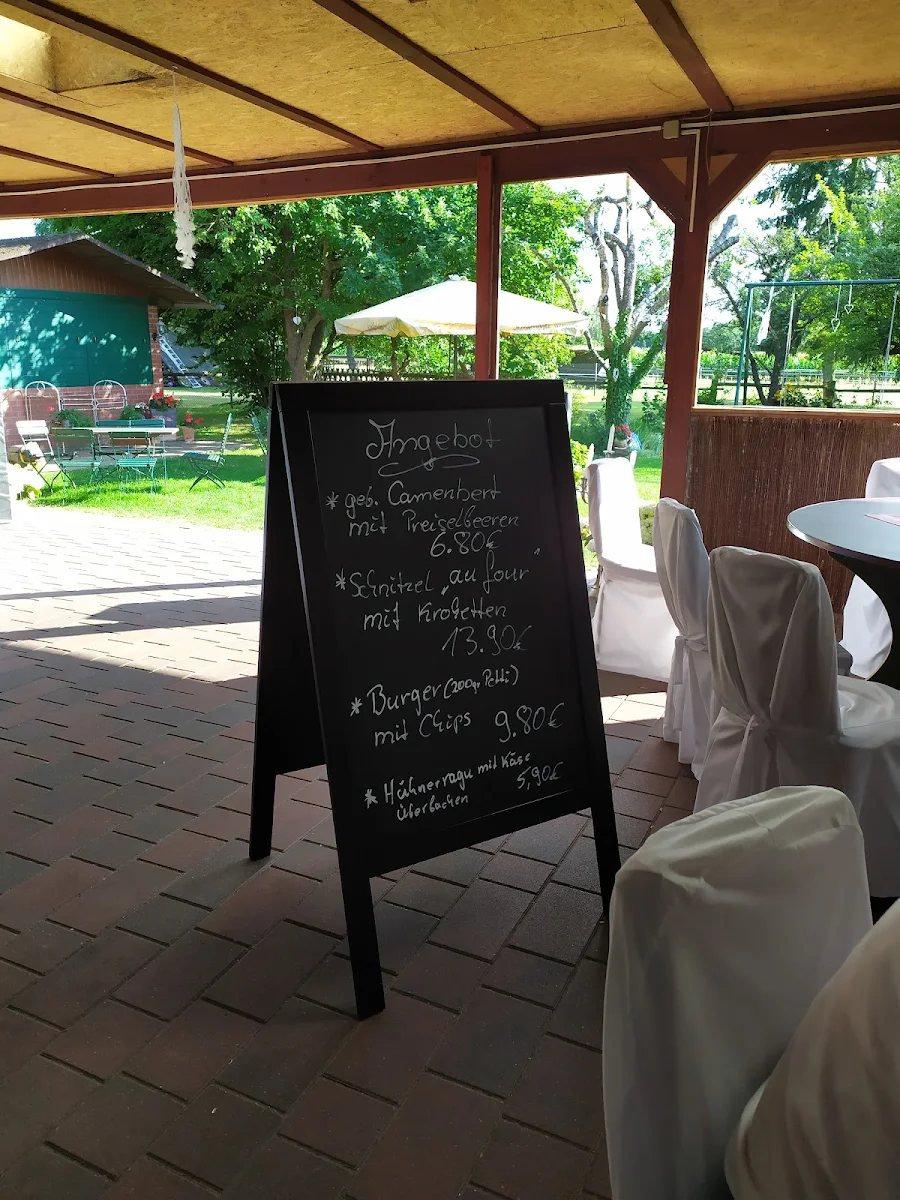 Angebot
* geb. Camenbert
mit Preiselbeeren
6.80€
* Schnitzel „au four"
mit Kroketten
13.90€
* Burger (200gr. Petti)
mit Chips 9.80€
* Hühnerragu mit Käse
überbacken 5,90€